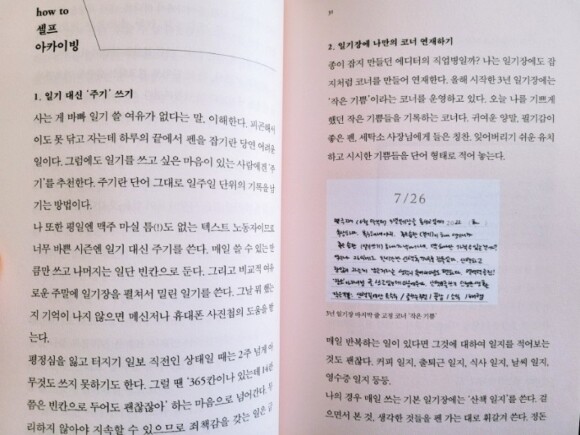 how to
셀프
아카이빙
1. 일기 대신 '주기' 쓰기
사는 게 바빠 일기 쓸 여유가 없다는 말, 이해한다. 피곤해서
이도 못 닦고 자는데 하루의 끝에서 펜을 잡기란 당연 어려운
일이다. 그럼에도 일기를 쓰고 싶은 마음이 있는 사람에겐 '주
기'를 추천한다. 주기란 단어 그대로 일주일 단위의 기록을 남
기는 방법이다.
나 또한 평일엔 맥주 마실 틈(!)도 없는 텍스트 노동자이므로
너무 바쁜 시즌엔 일기 대신 주기를 쓴다. 매일 쓸 수 있는 만
큼만 쓰고 나머지는 일단 빈칸으로 둔다. 그리고 비교적 여유
로운 주말에 일기장을 펼쳐서 밀린 일기를 쓴다. 그날 뭐 했는
지 기억이 나지 않으면 메신저나 휴대폰 사진첩의 도움을 받
는다.
평정심을 잃고 터지기 일보 직전인 상태일 때는 2주 넘게 아
무것도 쓰지 못하기도 한다. 그럴 땐 '365칸이나 있는데 14칸
쯤은 빈칸으로 두어도 괜찮잖아' 하는 마음으로 넘어간다. 무
리하지 않아야 지속할 수 있으므로 죄책감을 갖는 일은 금
31
2. 일기장에 나만의 코너 연재하기
종이 잡지 만들던 에디터의 직업병일까? 나는 일기장에도 잡
지처럼 코너를 만들어 연재한다. 올해 시작한 3년 일기장에는
'작은 기쁨'이라는 코너를 운영하고 있다. 오늘 나를 기쁘게
했던 작은 기쁨들을 기록하는 코너다. 귀여운 양말, 필기감이
좋은 펜, 세탁소 사장님에게 들은 칭찬. 잊어버리기 쉬운 유치
하고 시시한 기쁨들을 단어 형태로 적어 놓는다.
7/26
3년 일기장 마지막 줄 고정 코너 '작은 기쁨'
매일 반복하는 일이 있다면 그것에 대하여 일지를 적어보는
것도 괜찮다. 커피 일지, 출퇴근 일지, 식사 일지, 날씨 일지,
영수증 일지 등등.
나의 경우 매일 쓰는 기본 일기장에는 '산책 일지'를 쓴다. 걸
으면서 본 것, 생각한 것들을 펜 가는 대로 휘갈겨 쓴다. 정돈